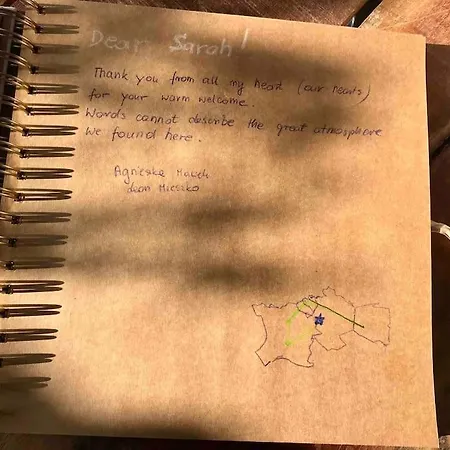 Dear Sarah!
Thank you from all my heart (our hearts)
for your warm welcome.
Words cannot describe the great atmosphere
we found here.
Agnieszka
Leon Mieszko